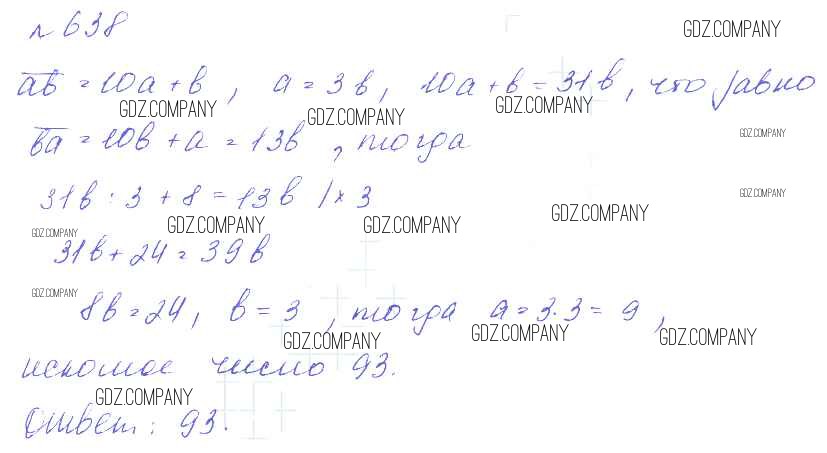 № 638
GDZ.COMPANY
ab = 10a + b, a = 3b, 10a + b = 31b, что равно
GDZ.COMPANY GDZ.COMPANY GDZ.COMPANY
ba = 10b + a = 13b, тогда
GDZ.COMPANY
31b : 3 + 8 = 13b / × 3
GDZ.COMPANY
GDZ.COMPANY GDZ.COMPANY GDZ.COMPANY GDZ.COMPANY
31b + 24 = 39b
GDZ.COMPANY
8b = 24, b = 3, тогда a = 3·3 = 9,
GDZ.COMPANY GDZ.COMPANY GDZ.COMPANY
искомое число 93.
GDZ.COMPANY
Ответ: 93.